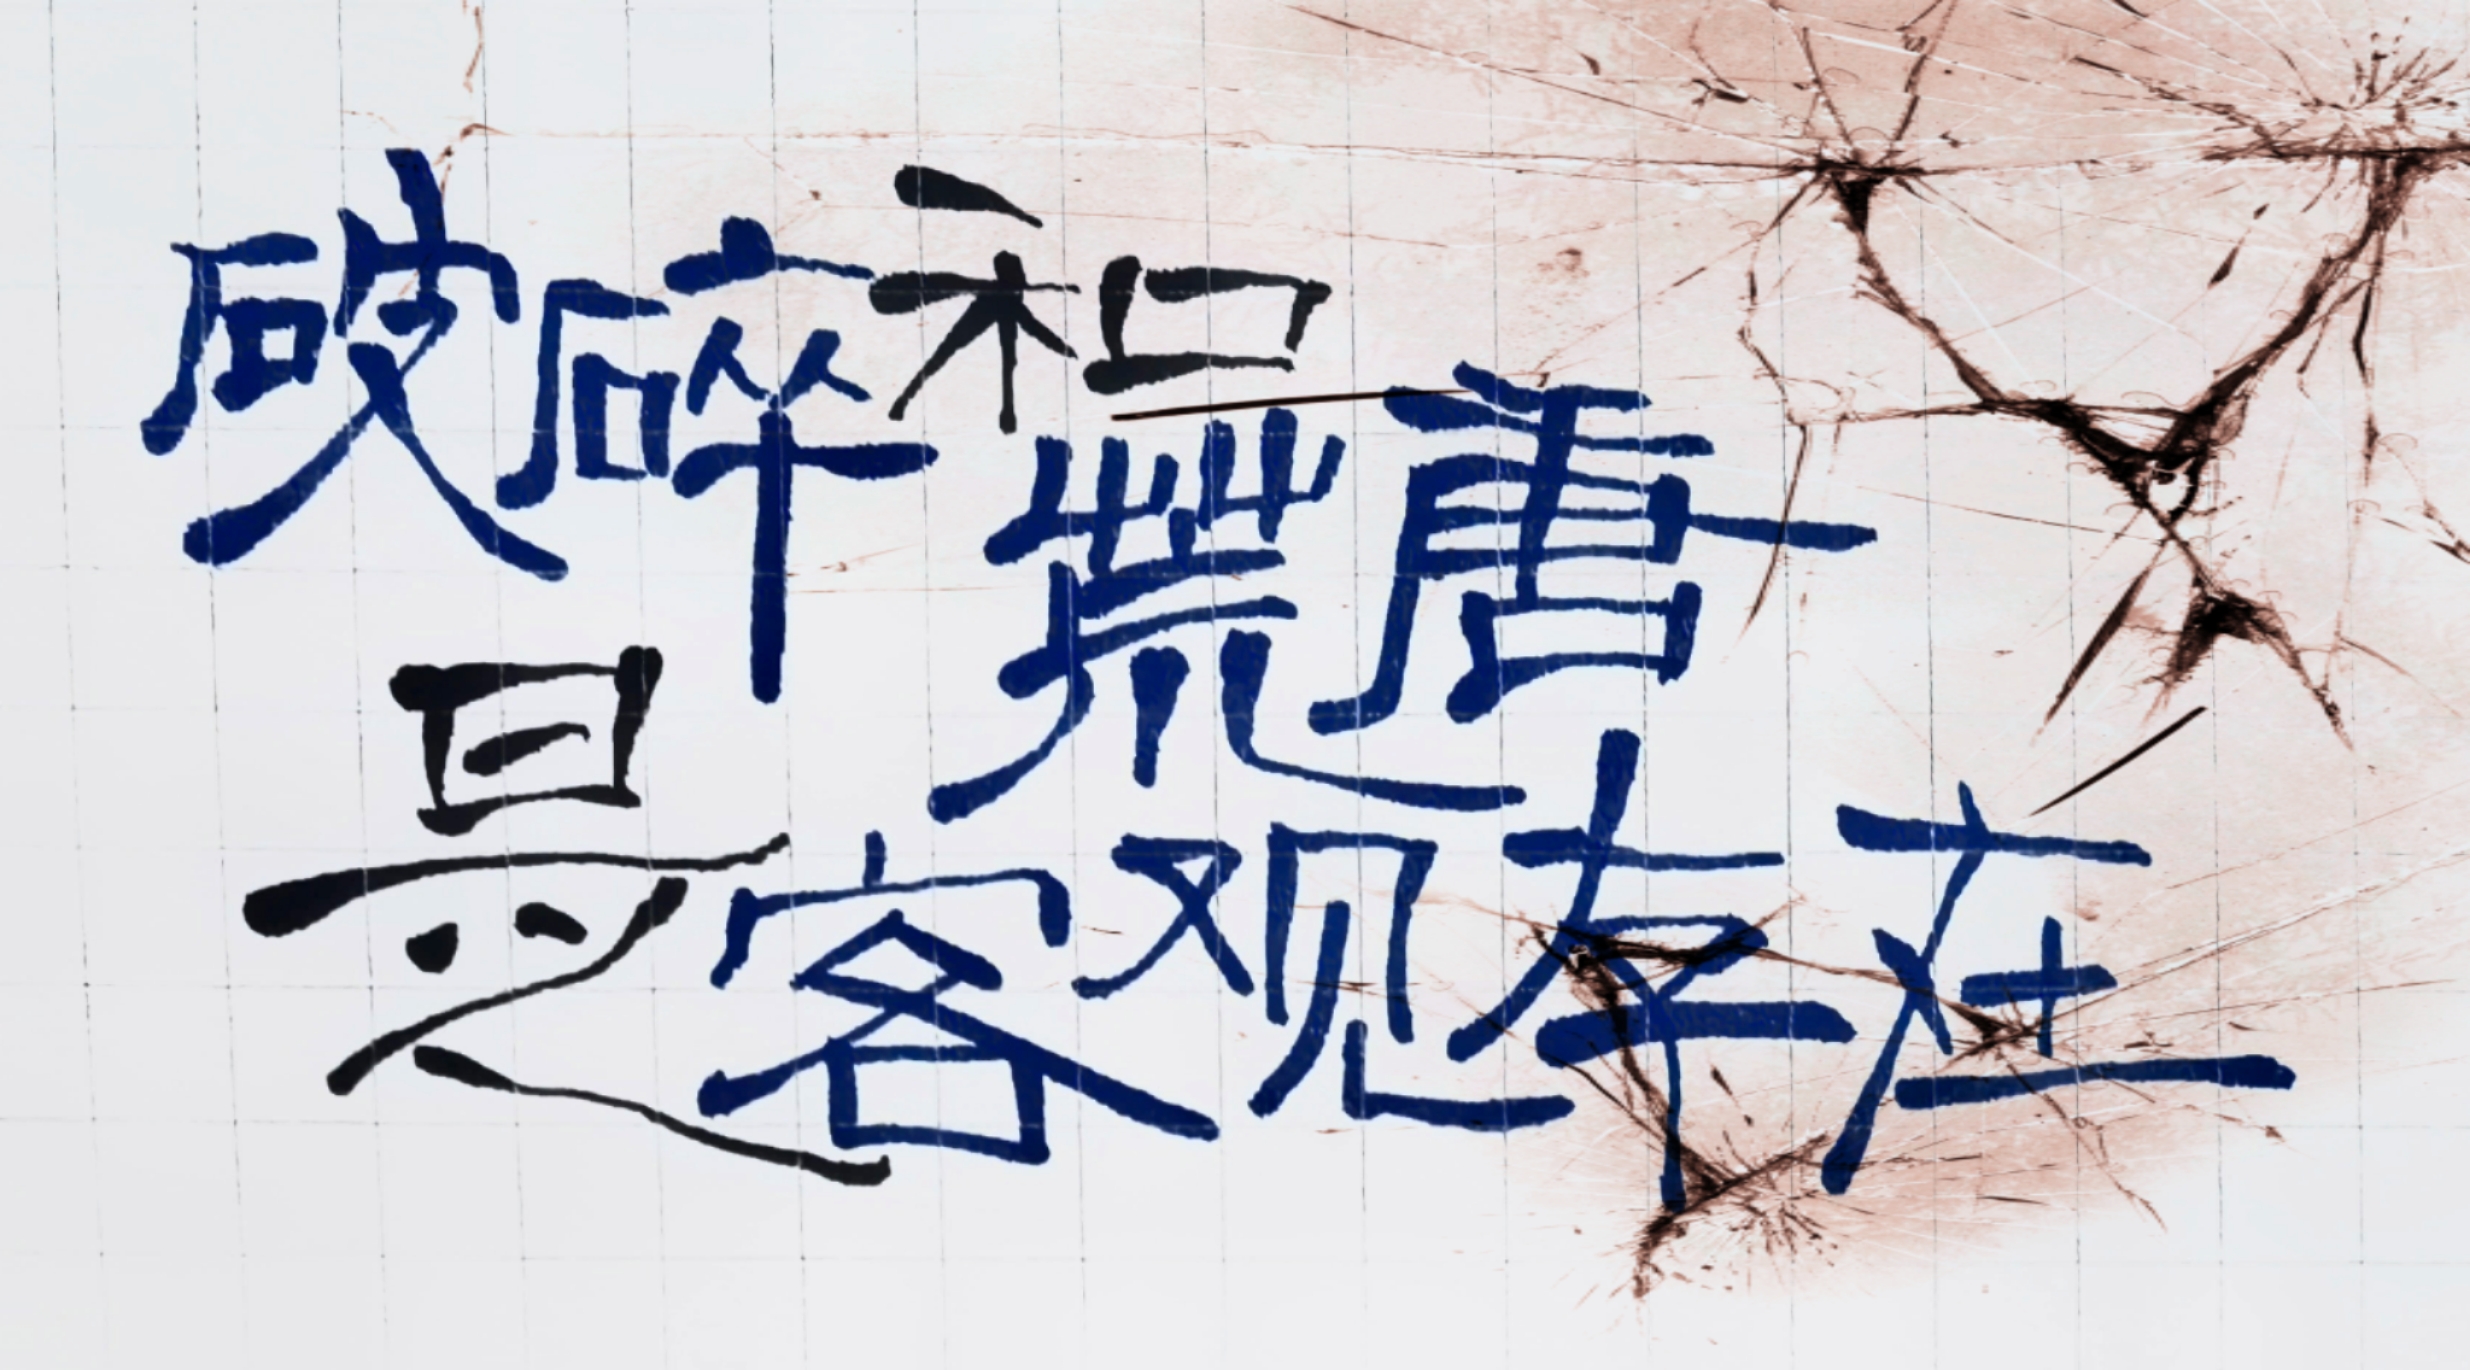 破碎和
荒唐
是客观存在